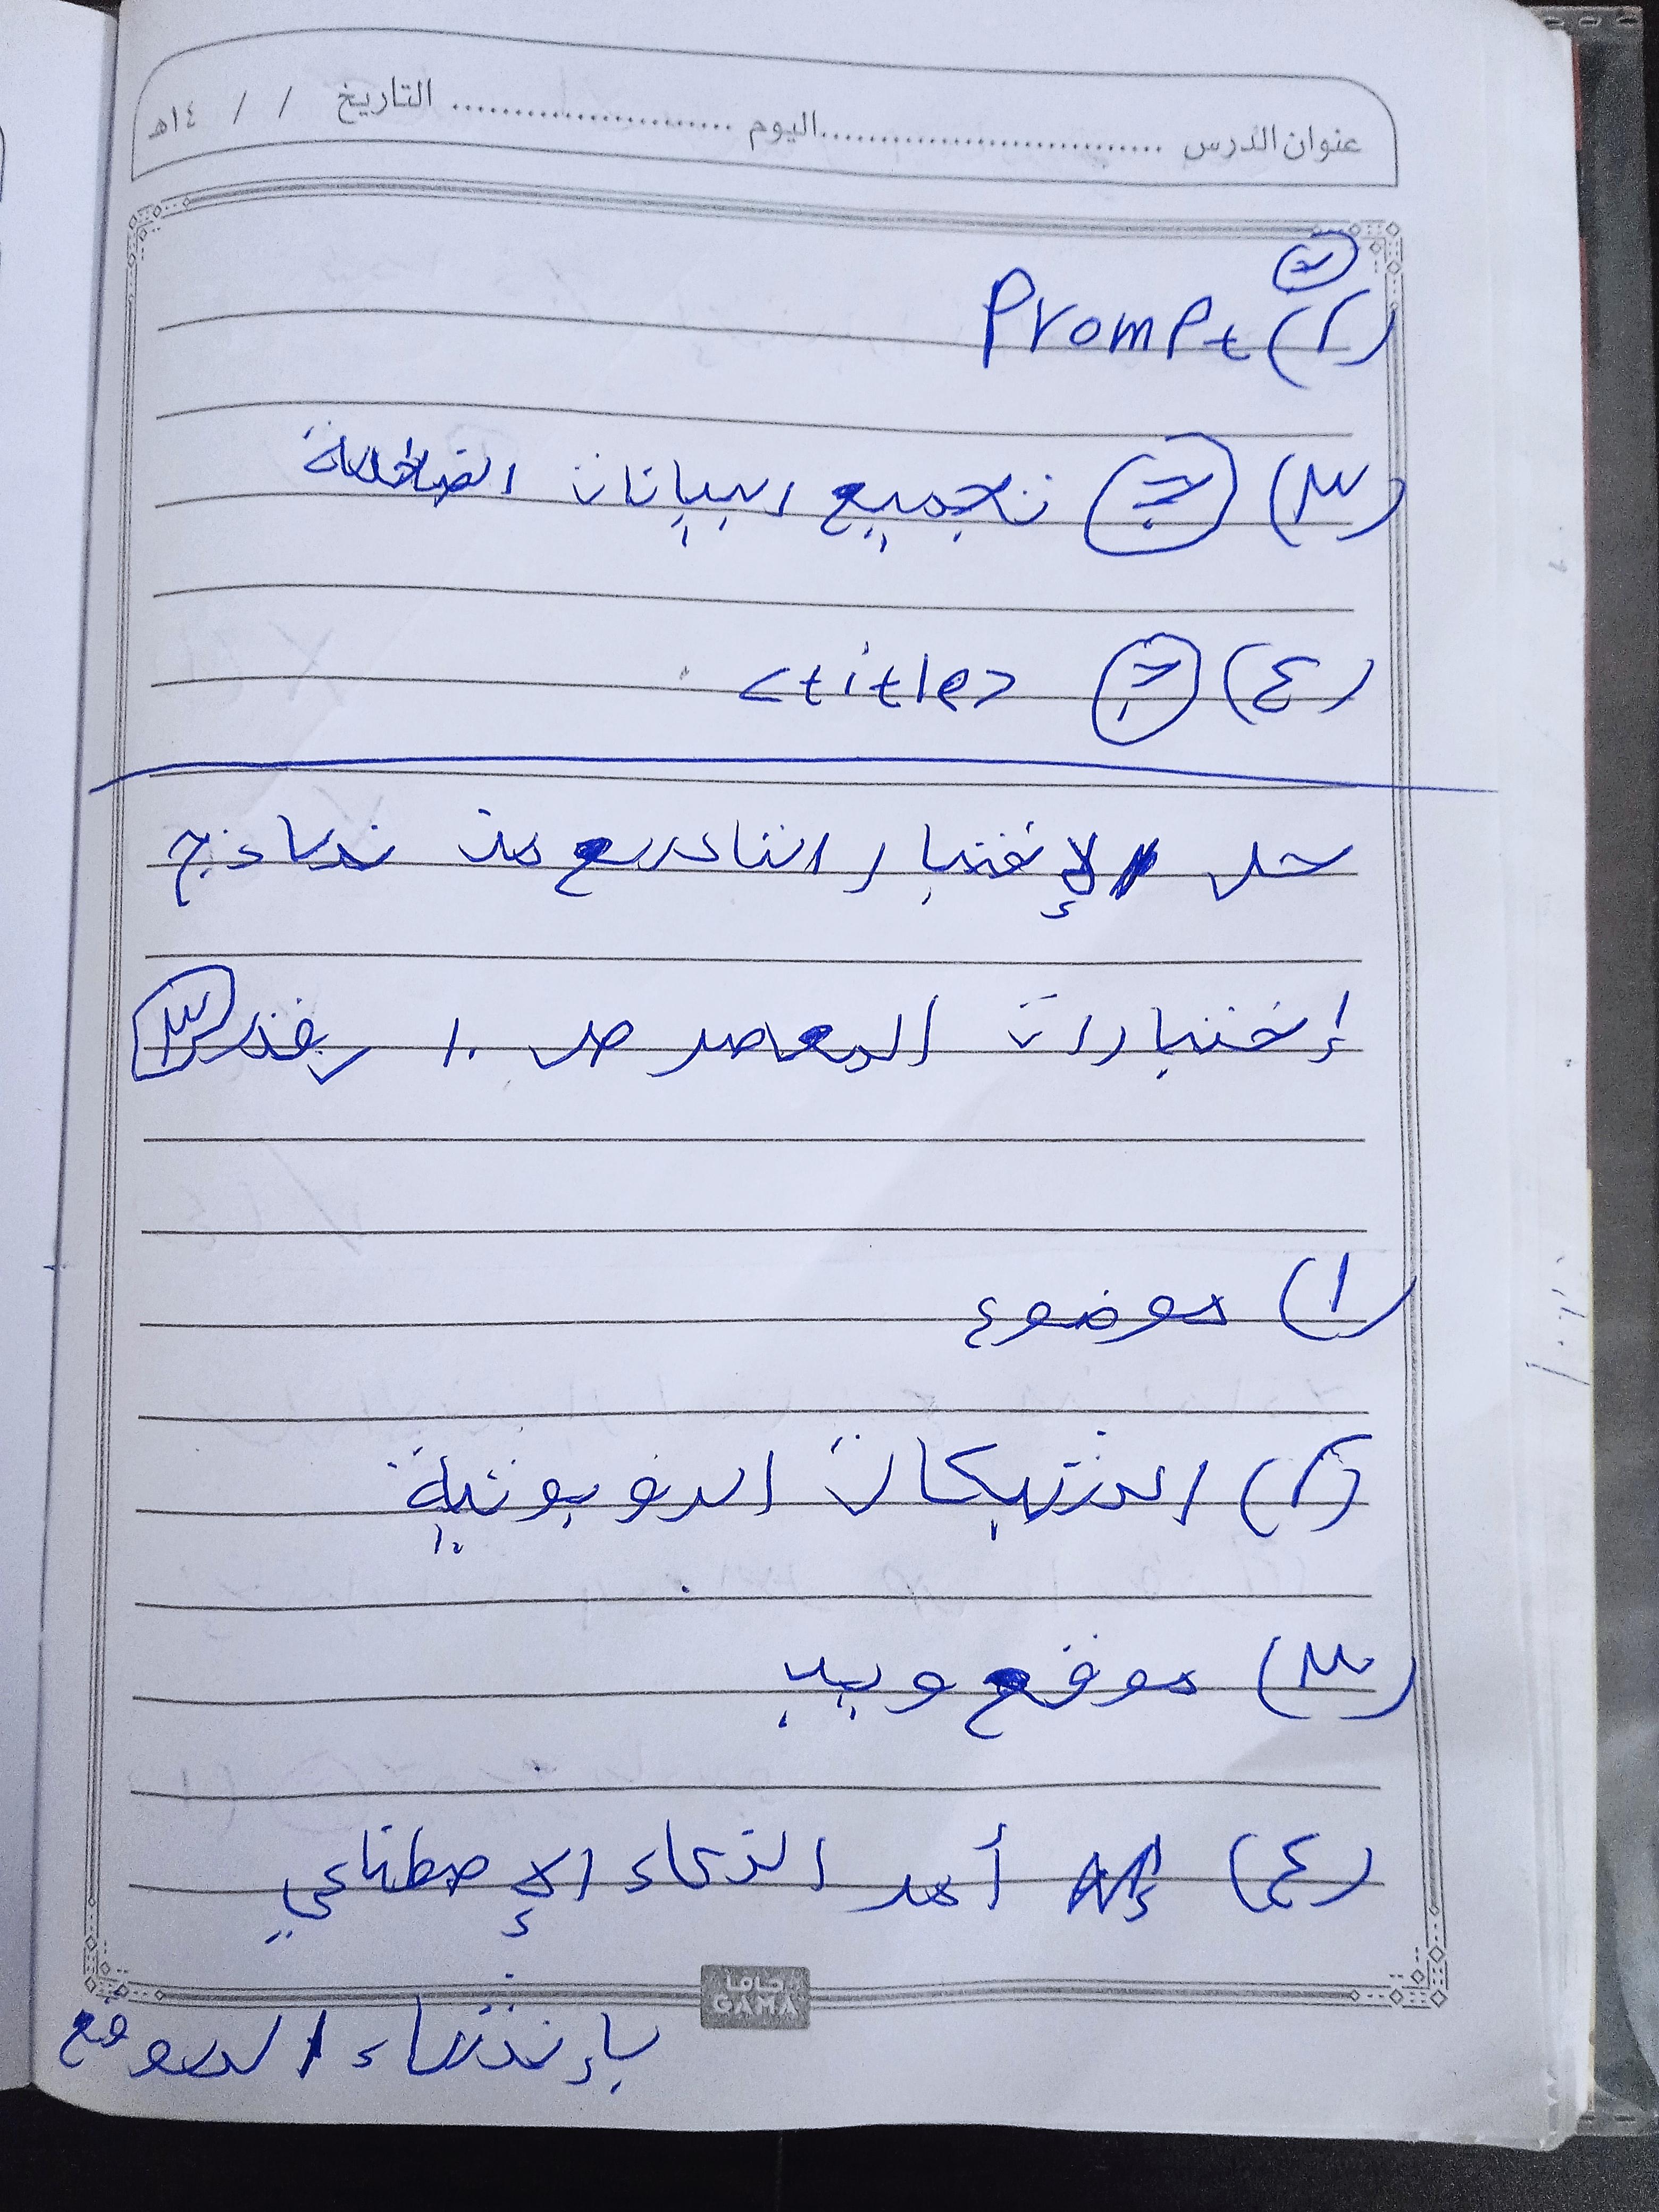 عنوان الدرس ..............................اليوم ........................ التاريخ / / ١٤هـ
(٢) ج Prompt
(٣) ج تجميع البيانات الضخمة
(٤) ج <title>
حل الإختبار التاسع من نماذج
إختبارات المعاصر ص ١٠ رقم ٣
(١) موضوع
(٢) الشبكات العنكبوتية
(٣) موقع ويب
(٤) أمر الذكاء الإصطناعي
بإنشاء الموقع
جاما
GAMA